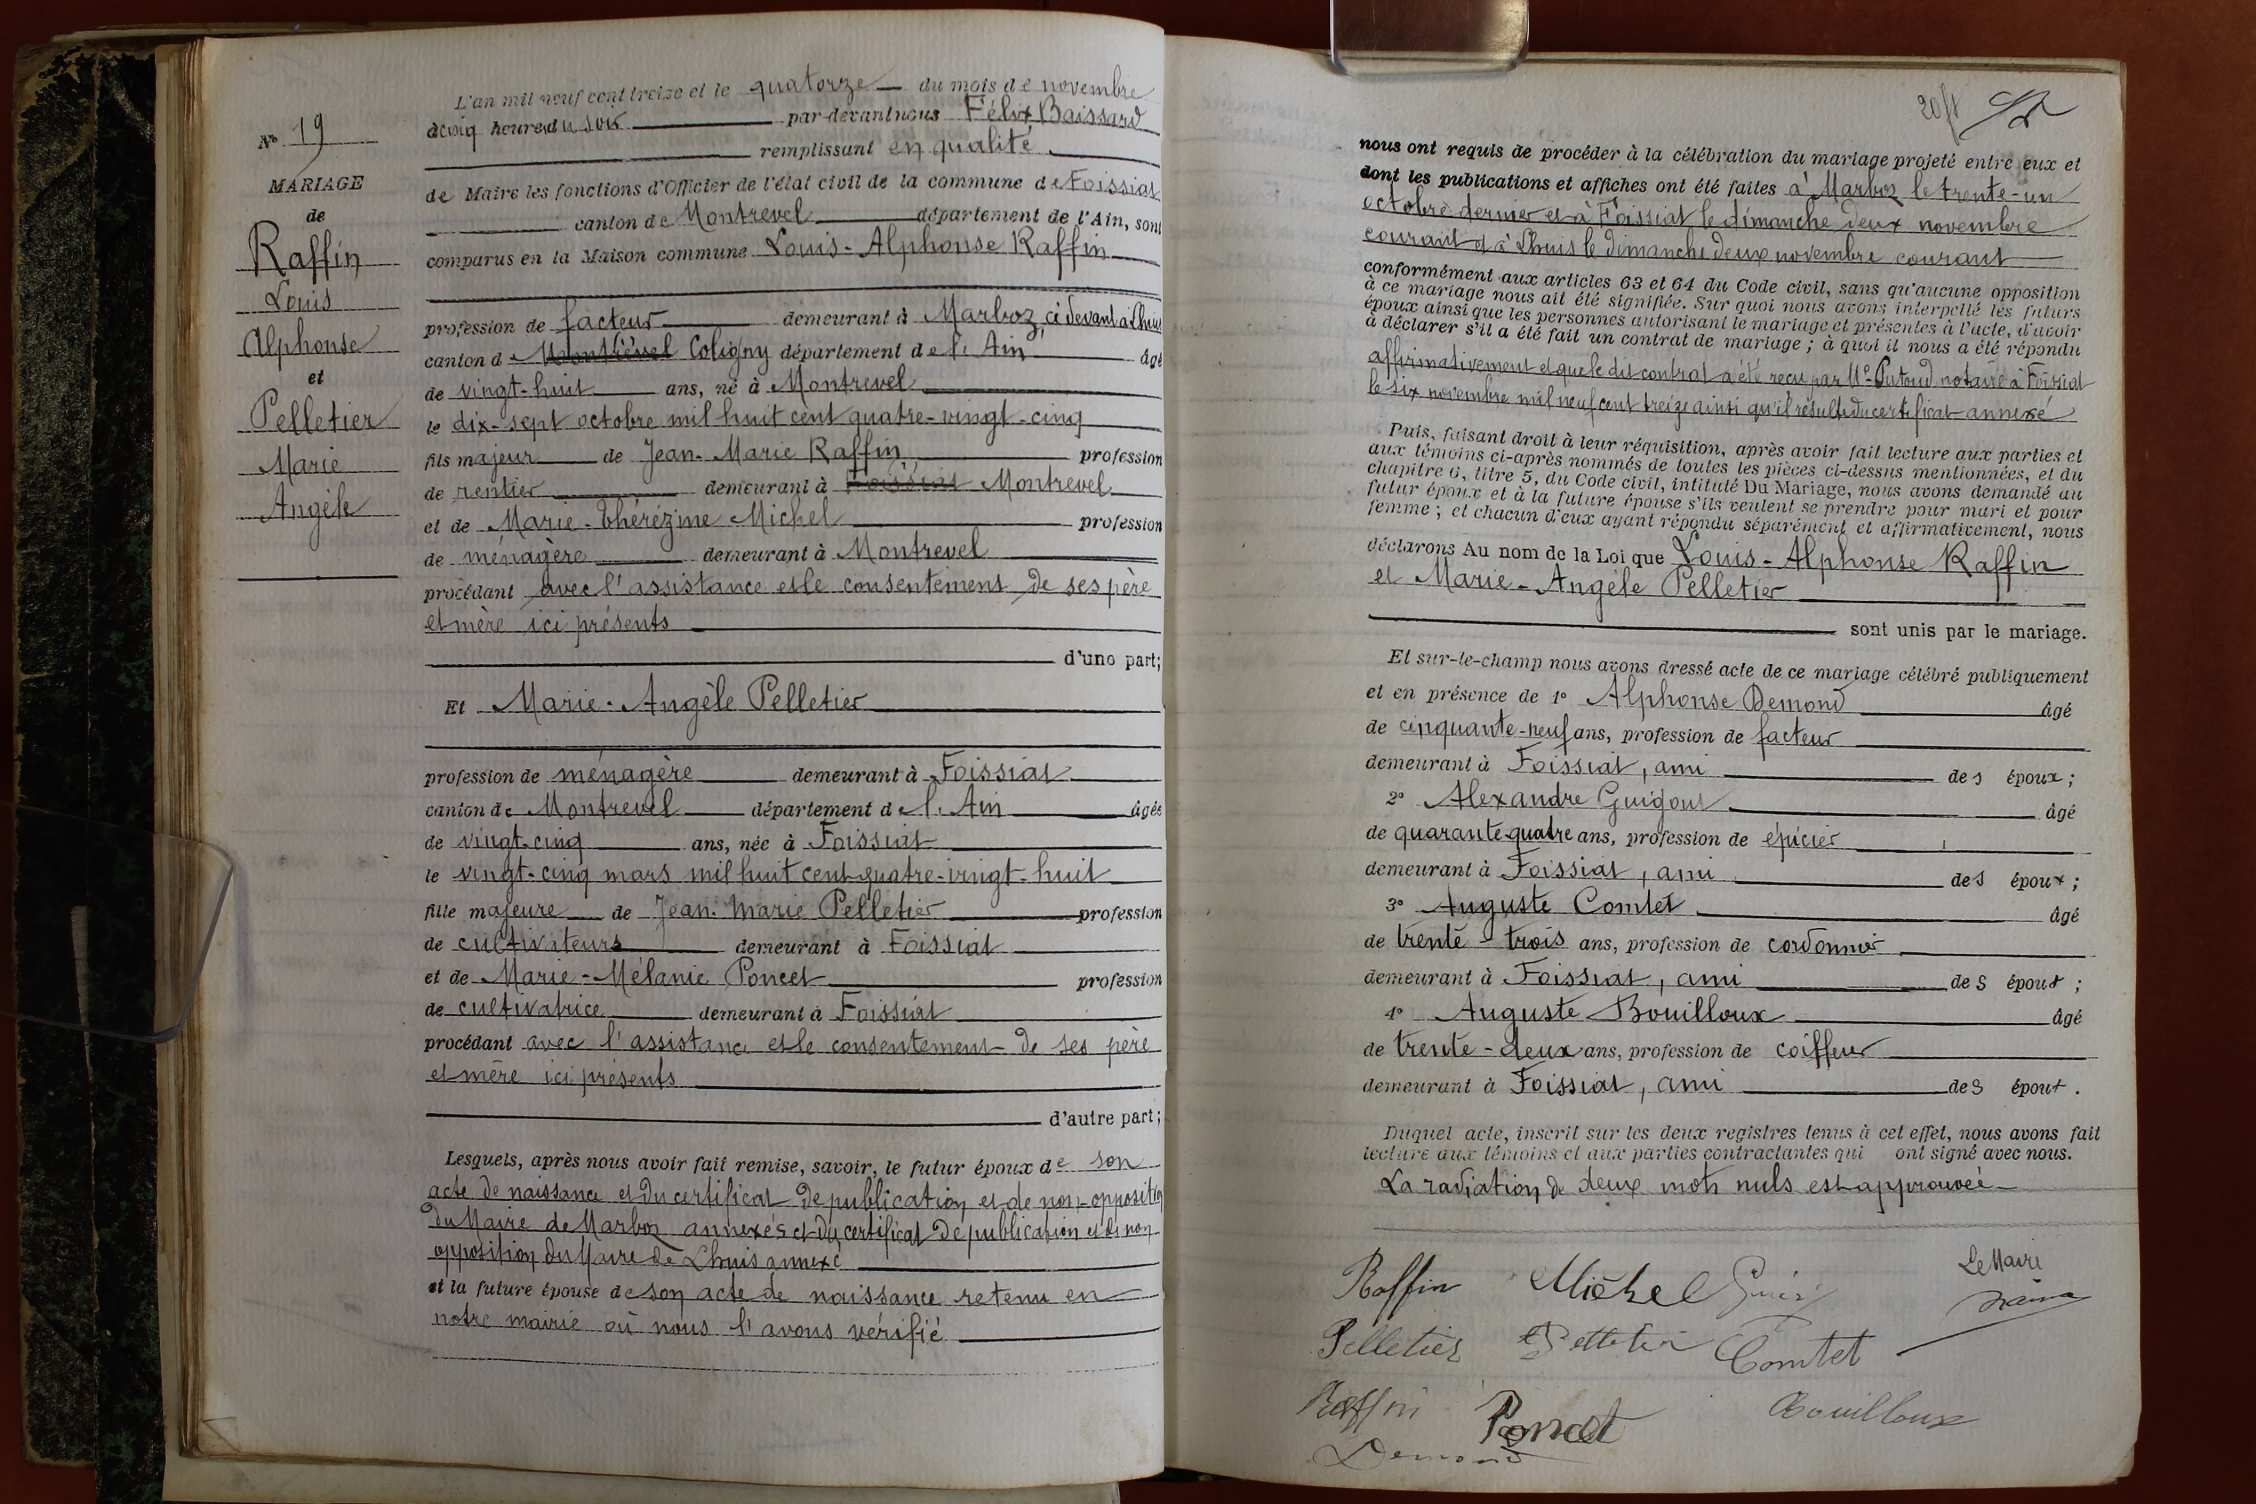 N° 19
MARIAGE
de
Raffin
Louis
Alphonse
et
Pelletier
Marie
Angèle
L'an mil neuf cent treize et le quatorze du mois de novembre
à cinq heures du soir par-devant nous Félix Baissard
remplissant en qualité
de Maire les fonctions d'Officier de l'état civil de la commune de Foissiat
canton de Montrevel département de l'Ain, sont
comparus en la Maison commune Louis-Alphonse Raffin
profession de facteur demeurant à Marboz, ci devant à Lhuis
canton de Montrevel Coligny département de l'Ain âgé
de vingt-huit ans, né à Montrevel
le dix-sept octobre mil huit cent quatre-vingt-cinq
fils majeur de Jean-Marie Raffin profession
de rentier demeurant à Foissiat Montrevel
et de Marie-Thérézine Michel profession
de ménagère demeurant à Montrevel
procédant avec l'assistance et le consentement de ses père
et mère ici présents
d'une part;
Et Marie-Angèle Pelletier
profession de ménagère demeurant à Foissiat
canton de Montrevel département de l'Ain âgée
de vingt-cinq ans, née à Foissiat
le vingt-cinq mars mil huit cent quatre-vingt-huit
fille majeure de Jean-Marie Pelletier profession
de cultivateurs demeurant à Foissiat
et de Marie-Mélanie Poncet profession
de cultivatrice demeurant à Foissiat
procédant avec l'assistance et le consentement de ses père
et mère ici présents
d'autre part;
Lesquels, après nous avoir fait remise, savoir, le futur époux de son
acte de naissance et du certificat de publication et de non-opposition
du Maire de Marboz annexés et du certificat de publication et de non
opposition du Maire de Lhuis annexé
et la future épouse de son acte de naissance retenu en
notre mairie où nous l'avons vérifié
nous ont requis de procéder à la célébration du mariage projeté entre eux et
dont les publications et affiches ont été faites à Marboz le trente-un
octobre dernier et à Foissiat le dimanche deux novembre
courant et à Lhuis le dimanche deux novembre courant
conformément aux articles 63 et 64 du Code civil, sans qu'aucune opposition
à ce mariage nous ait été signifiée. Sur quoi nous avons interpellé les futurs
époux ainsi que les personnes autorisant le mariage et présentes à l'acte, d'avoir
à déclarer s'il a été fait un contrat de mariage ; à quoi il nous a été répondu
affirmativement et que le dit contrat a été reçu par Me Putoud notaire à Foissiat
le six novembre mil neuf cent treize ainsi qu'il résulte du certificat annexé
Puis, faisant droit à leur réquisition, après avoir fait lecture aux parties et
aux témoins ci-après nommés de toutes les pièces ci-dessus mentionnées, et du
chapitre 6, titre 5, du Code civil, intitulé Du Mariage, nous avons demandé au
futur époux et à la future épouse s'ils veulent se prendre pour mari et pour
femme ; et chacun d'eux ayant répondu séparément et affirmativement, nous
déclarons Au nom de la Loi que Louis-Alphonse Raffin
et Marie-Angèle Pelletier
sont unis par le mariage.
Et sur-le-champ nous avons dressé acte de ce mariage célébré publiquement
et en présence de 1° Alphonse Demond âgé
de cinquante-neuf ans, profession de facteur
demeurant à Foissiat, ami des époux ;
2° Alexandre Guigous âgé
de quarante-quatre ans, profession de épicier
demeurant à Foissiat, ami des époux ;
3° Auguste Comtet âgé
de trente-trois ans, profession de cordonnier
demeurant à Foissiat, ami des époux ;
4° Auguste Bouilloux âgé
de trente-deux ans, profession de coiffeur
demeurant à Foissiat, ami des époux.
Duquel acte, inscrit sur les deux registres tenus à cet effet, nous avons fait
lecture aux témoins et aux parties contractantes qui ont signé avec nous.
La radiation de deux mots nuls est approuvée
Raffin Michel
Le Maire
Pelletier Pelletier Comtet
Raffin Poncet Bouilloux
Demond